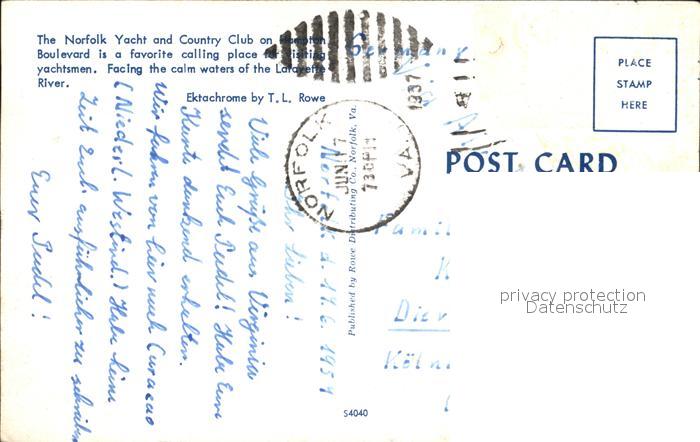 The Norfolk Yacht and Country Club on Hampton
Boulevard is a favorite calling place for visiting
yachtsmen. Facing the calm waters of the Lafayette
River.
Ektachrome by T. L. Rowe
Germany
PLACE
STAMP
HERE
NORFOLK VA
JUN 17
730 PM
POST CARD
Published by Rowe Distributing Co., Norfolk, Va.
Norfolk, d. 17.6.1959
Ihr Lieben!
Viele Grüße aus Virginia
sendet Euch Pudel! Habe Eure
Karte dankend erhalten.
Wir fahren von hier nach Curacao
(Niederl. Westind.) Habe keine
Zeit Euch ausführlicher zu schreiben
Euer Pudel!
Famil
K
Köln
privacy protection
Datenschutz
S4040